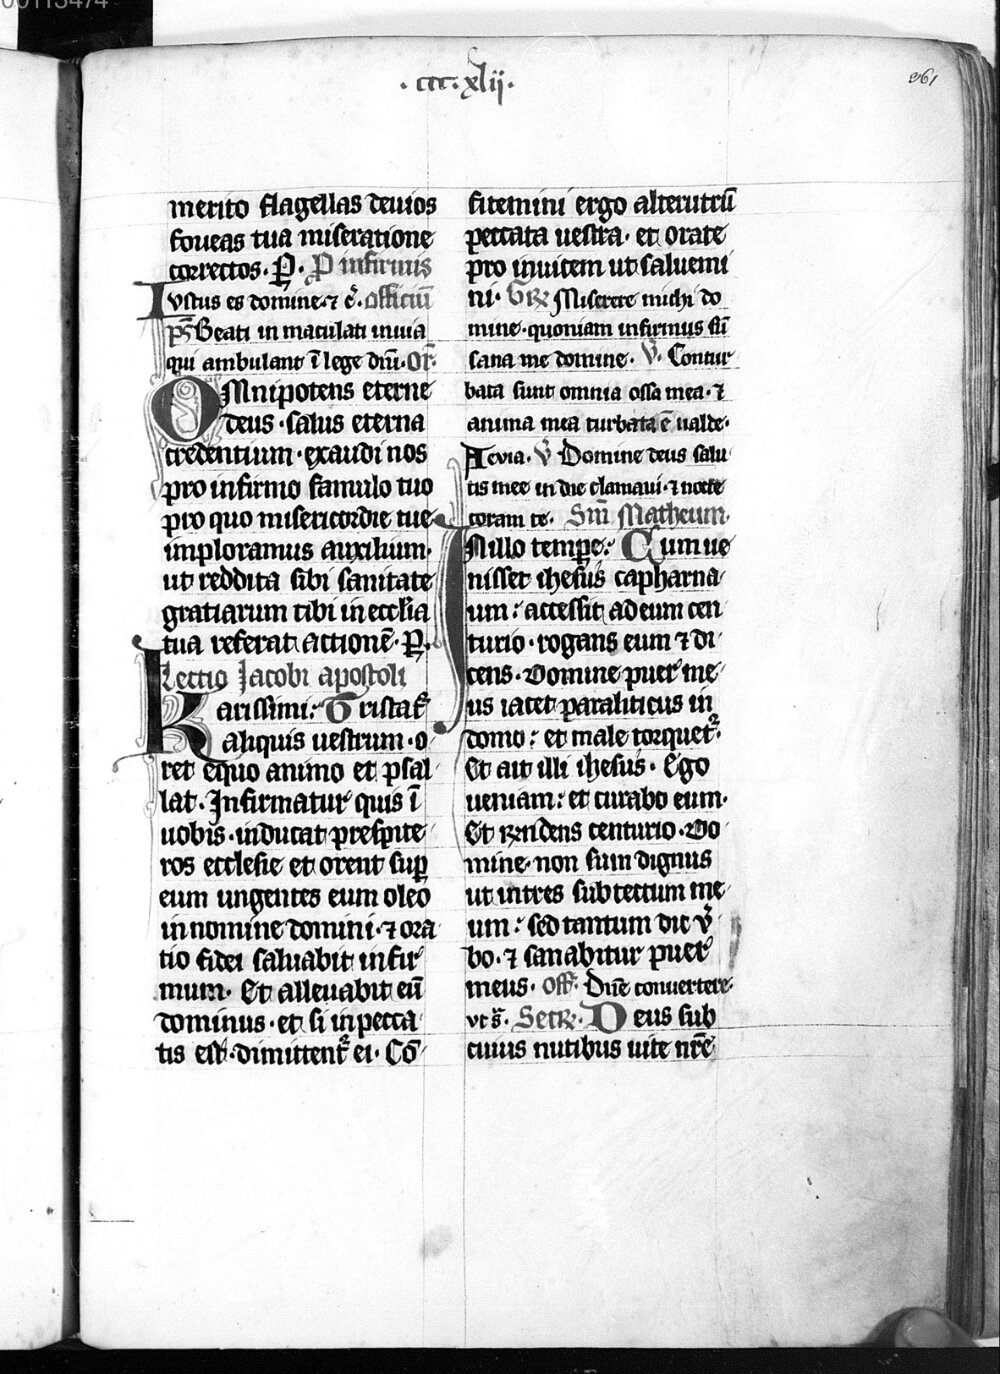 00113474
·ccc·xlii·
361
merito flagellas deuios
foueas tua miseratione
correctos· P̲· P infirmis
Iustus es domine·⁊ c̄· officiū
pꝰ Beati in maculati in uia
qui ambulant ī lege dn̄i· Or̄·
OMnipotens eterne
deus·salus eterna
credentium·exaudi nos
pro infirmo famulo tuo
pro quo misericordie tue
imploramus auxilium·
ut reddita sibi sanitate
gratiarum tibi in ecclia
tua referat actionē· P̲·
Lectio Jacobi apostoli
Karissimi: Tristat᷑
aliquis uestrum·o
ret equo animo et psal
lat·Infirmatur quis ī
uobis·inducat presbite
ros ecclesie et orent suꝑ
eum ungentes eum oleo
in nomine domini·⁊ ora
tio fidei saluabit infir
mum· Et alleuabit eū
dominus·et si in pecca
tis est·dimittent᷑ ei· Cō
fitemini ergo alterutrū
peccata uestra· et orate
pro inuicem ut saluemi
ni· Gꝶ Miserere michi do
mine·quoniam infirmus sū
sana me domine· V̄· Contur
bata sunt omnia ossa mea·⁊
anima mea turbata ē ualde·
Aeuia· V̄ Domine deus salu
tis mee in die clamaui·⁊ nocte
coram te· Sm̄ Matheum·
IN illo temꝑe: Cum ue
nisset ihesus capharna
um: accessit ad eum cen
turio·rogans eum ⁊ di
cens·Domine puer me
us iacet paraliticus in
domo: et male torquet᷑·
Et ait illi ihesus· Ego
ueniam: et curabo eum·
Et rn̄dens centurio·Do
mine·non sum dignus
ut intres sub tectum me
um: sed tantum dic v̄
bo·⁊ sanabitur puer
meus· Off· Dn̄e conuertere·
vt s̄· Secꝶ· Deus sub
cuius nutibus uite nr̄e